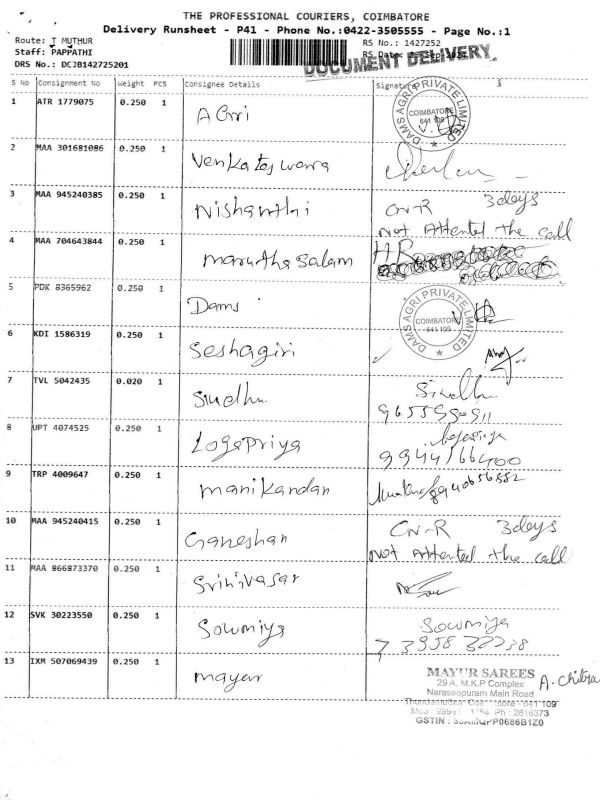 THE PROFESSIONAL COURIERS, COIMBATORE
Delivery Runsheet - P41 - Phone No.:0422-3505555 - Page No.:1
Route: T MUTHUR
RS No.: 1427252
Staff: PAPPATHI
RS Date:
DRS No.:
DOCUMENT DELIVERY
S No Consignment No Weight PCS Consignee Details Signature
1 ATR 1779075 0.250 1 Agri
DAMS AGRI PRIVATE LIMITED COIMBATORE 641 109
2 MAA 301681086 0.250 1 Venkateswara
3 MAA 945240385 0.250 1 Nishanthi CN-R 3days
Not Attented the call
4 MAA 704643844 0.250 1 Marutha Salam HR
5 PDK 8365962 0.250 1 Dams
DAMS AGRI PRIVATE LIMITED COIMBATORE 641 109
6 KDI 1586319 0.250 1 Seshagiri
7 TVL 5042435 0.020 1 Sindhu Sindhu
8 UPT 4074525 0.250 1 Logapriya
9944166400
9 TRP 4009647 0.250 1 Manikandan
10 MAA 945240415 0.250 1 Ganeshan CN-R 3days
Not Attented the call
11 MAA 866873370 0.250 1 Srinivasan
12 SVK 30223550 0.250 1 Sowmiya Sowmiya
13 IXM 507069439 0.250 1 mayur
MAYUR SAREES
29 A, M.K.P Complex
A. Chitra
Naraseepuram Main Road
641 109
Ph: 2616373
GSTIN :